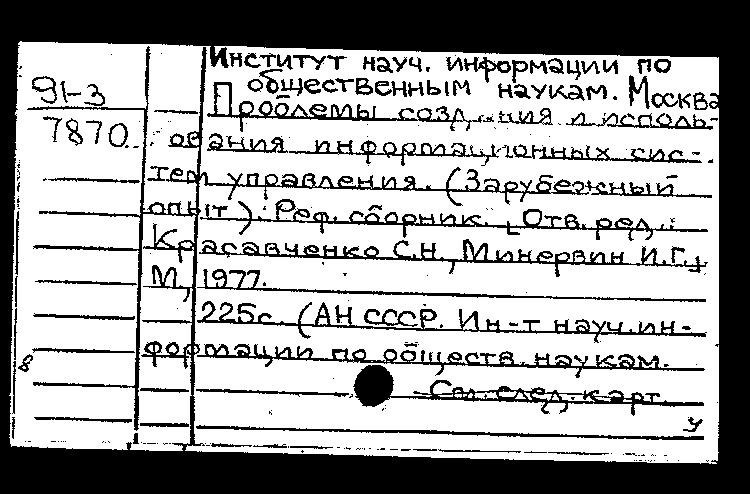 Институт науч. информации по
91-3 общественным наукам. Москва
Проблемы создания и исполь-
7870. ования информационных сис-
тем управления. (Зарубежный
опыт). Реф. сборник. [Отв. ред.:
Красавченко С.Н., Минервин И.Г.]
М, 1977.
225с. (АН СССР. Ин-т науч. ин-
формации по обществ. наукам.
8 См. след. карт.
У